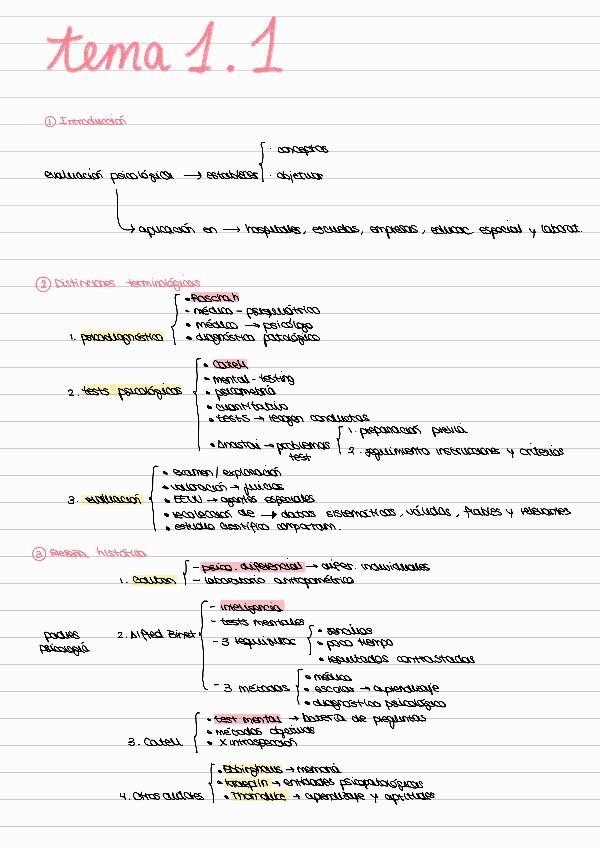 tema 1.1
① Introducción
· conceptos
evaluación psicológica → establecer · objetivos
→ aplicación en → hospitales, escuelas, empresas, educac. espacial y laborat.
② Distinciones terminológicas
• Roscharh
• médico - psiquiátrico
• médico → psicólogo
1. psicodiagnóstico • diagnóstico patológico
• Catell
2. tests psicológicos • mental-testing
• psicometría
• cuantitativo
• tests → recogen conductas
1. preparación previa
• Anastasi → problemas
test 2. seguimiento instrucciones y criterios
• examen/exploración
• valoración → juicios
3. evaluación • EEUU → agentes especiales
• recolección de → datos sistemáticos, válidos, fiables y relevantes
• estudio científico comportam.
③ Reseña histórica
- psico. diferencial → difer. individuales
1. Galton - laboratorio antropométrico
- inteligencia
- tests mentales
padres 2. Alfred Binet • sencillos
psicología - 3 requisitos • poco tiempo
• resultados contrastados
• médico
- 3 métodos • escolar → aprendizaje
• diagnóstico psicológico
• test mental → batería de preguntas
• métodos objetivos
3. Catell • X introspección
• Ebbinghaus → memoria
• Kraeplin → entidades psicopatológicas
4. Otros autores • Thorndike → aprendizaje y aptitudes